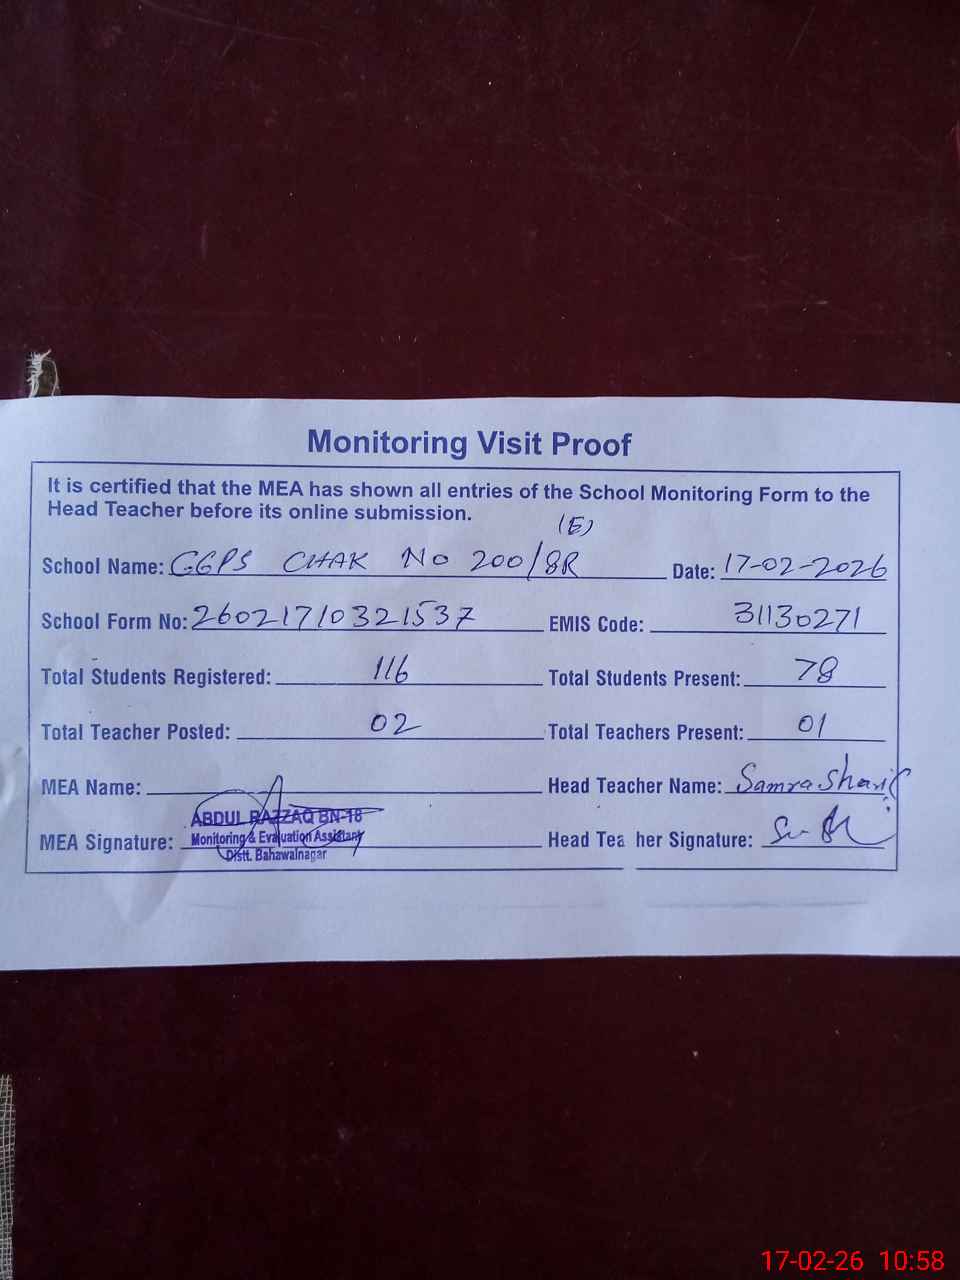 Monitoring Visit Proof
It is certified that the MEA has shown all entries of the School Monitoring Form to the
Head Teacher before its online submission.
(E)
School Name: GGPS CHAK No 200/8R Date: 17-02-2026
School Form No: 26021710321537 EMIS Code: 31130271
Total Students Registered: 116 Total Students Present: 78
Total Teacher Posted: 02 Total Teachers Present: 01
MEA Name: Head Teacher Name: Samra Sharif
ABDUL RAZZAQ BN-18
MEA Signature: Monitoring & Evaluation Assistant Head Tea her Signature:
Distt. Bahawalnagar
17-02-26 10:58